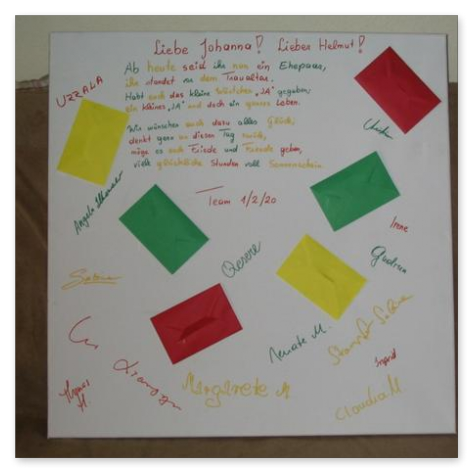 Liebe Johanna! Lieber Helmut!
Ab heute seid ihr nun ein Ehepaar,
ihr standet vor dem Traualtar.
Habt euch das kleine Wörtchen „JA“ gegeben,
ein kleines „JA“ und doch ein ganzes Leben.
Wir wünschen euch dazu alles Glück,
denkt gern an diesen Tag zurück,
möge es euch Friede und Freude geben,
viele glückliche Stunden voll Sonnenschein
UZZALA
Team 1/2/20
Angela
Irene
Gudrun
Sabine
Renate M.
Ingrid
Margarete M
Claudia M
Agnes
M.